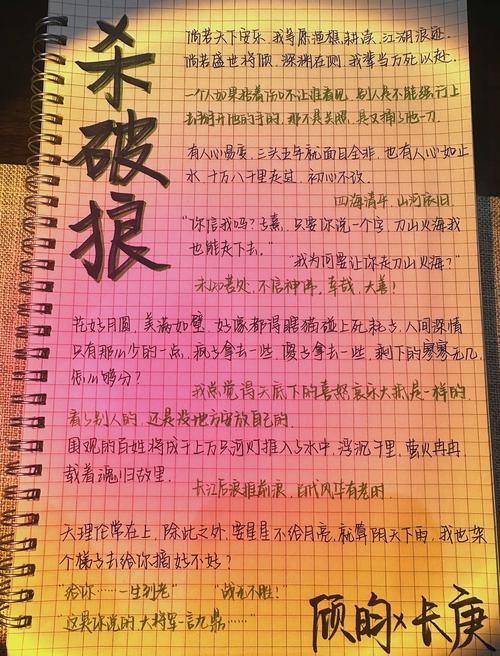 杀破狼
倘若天下安乐，我等愿渔樵耕读，江湖浪迹
倘若盛世将倾，深渊在侧，我辈当万死以赴
一个人如果捂着伤口不让谁看见，别人是不能强行上
去掰开他的手的，那不是关照，是又捅了他一刀.
有人心易变，三头五年就面目全非，也有人心如止
水，十万八千里走过，初心不改.
四海清平，山河依旧
"你信我吗？子熹，只要你说一个字，刀山火海我
也能走下去。"
"我为何要让你走刀山火海？"
未知苦处，不信神佛，幸哉，大善！
花好月圆，美满如璧，好像都得瞎猫碰上死耗子，人间深情
只有那么少的一点，疯子拿去一些，傻子拿去一些，剩下的寥寥无几，
怎么够分？
我总觉得天底下的喜怒哀乐大抵是一样的
看了别人的，还是没地方安放自己的.
围观的百姓将成千上万只河灯推入了水中，浮沉千里，萤火冉冉，
载着魂归故里.
长江后浪推前浪，百代风华有老时.
天理伦常在上，除此之外，要星星不给月亮，就算阴天下雨，我也架
个梯子去给你摘好不好？
"给你……一生到老" "战无不胜！"
"这是你说的，大将军一言九鼎……"
顾昀×长庚